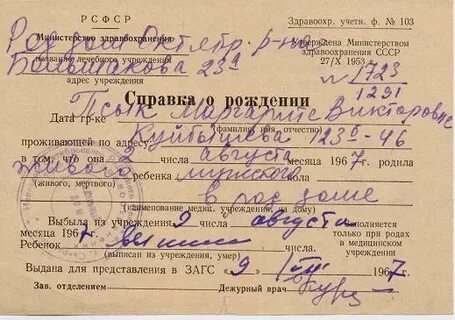 РСФСР
Министерство здравоохранения
Здравоохр. учетн. ф. № 103
Утверждена Министерством
здравоохранения СССР
27/X 1953
Роддом Октябр. р-на
название лечебного учреждения
Большакова 23а
адрес учреждения
№ 1723
1291
Справка о рождении
Дана гр-ке Псык Маргарите Викторовне
(фамилия, имя, отчество)
проживающей по адресу: Куйбышева 123а-46
в том, что она 2 числа августа месяца 1967 г. родила
живого ребенка мужского пола
(живого, мертвого)
в род доме
(наименование медиц. учреждения, на дому)
Выбыла из учреждения 9 числа августа
месяца 196 г.
заполняется
только при родах
в медицинском
учреждении
Ребенок выписан
(выписан из учреждения, умер)
Выдана для представления в ЗАГС «9» 1967 г.
Зав. отделением Дежурный врач